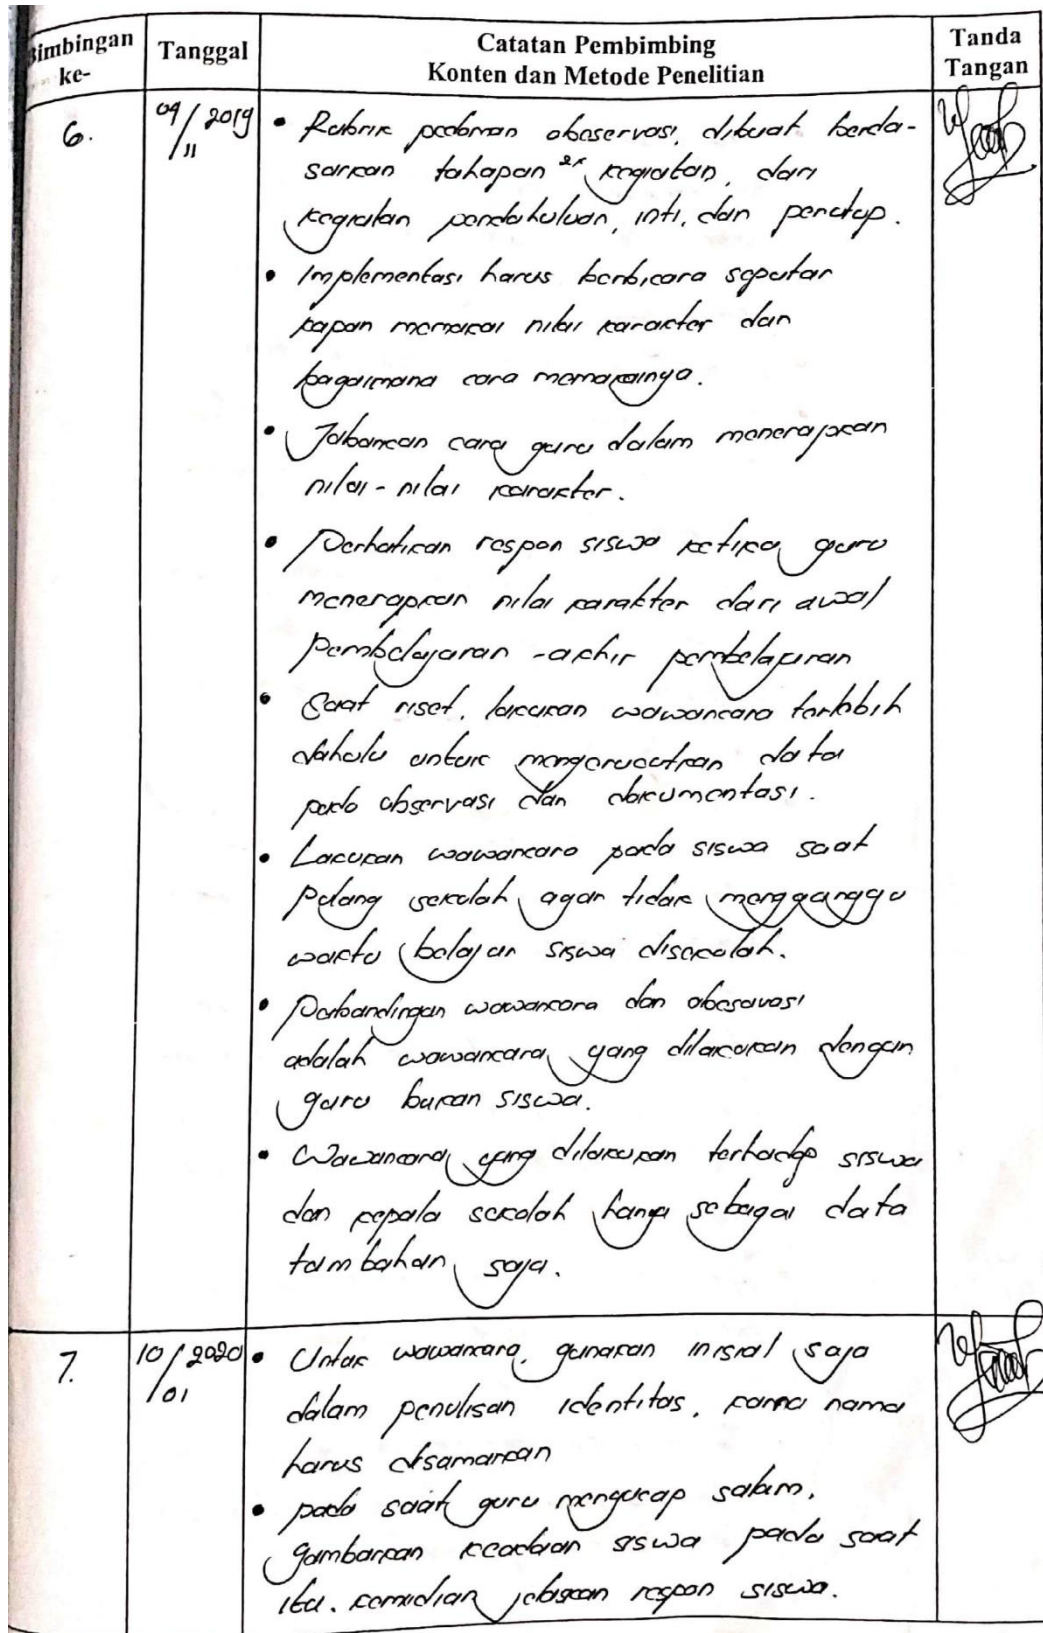 Bimbingan ke-
Tanggal
Catatan Pembimbing
Konten dan Metode Penelitian
Tanda Tangan
6.
09/11 2019
• Rubrik pedoman obeservasi, dibuat berda-
sarkan tahapan kegiatan, dari
kegiatan pendahuluan, inti, dan penutup.
• Implementasi harus berbicara seputar
kapan memakai nilai karakter dan
bagaimana cara memakainya.
• Jabarkan cara guru dalam menerapkan
nilai-nilai karakter.
• Perhatikan respon siswa ketika guru
menerapkan nilai karakter dari awal
pembelajaran - akhir pembelajaran
• Saat riset, lakukan wawancara terlebih
dahulu untuk mengerucutkan data
pada observasi dan dokumentasi.
• Lakukan wawancara pada siswa saat
pulang sekolah, agar tidak mengganggu
waktu belajar siswa disekolah.
• Perbandingan wawancara dan obesevasi
adalah wawancara yang dilakukan dengan
guru bukan siswa.
• Wawancara yang dilakukan terhadap siswa
dan kepala sekolah hanya sebagai data
tambahan saja.
7.
10/01 2020
• Untuk wawancara, gunakan inisial saja
dalam penulisan identitas, karna nama
harus disamarkan
• pada saat guru mengucap salam,
gambarkan keadaan siswa pada saat
itu. kemudian jelaskan respon siswa.